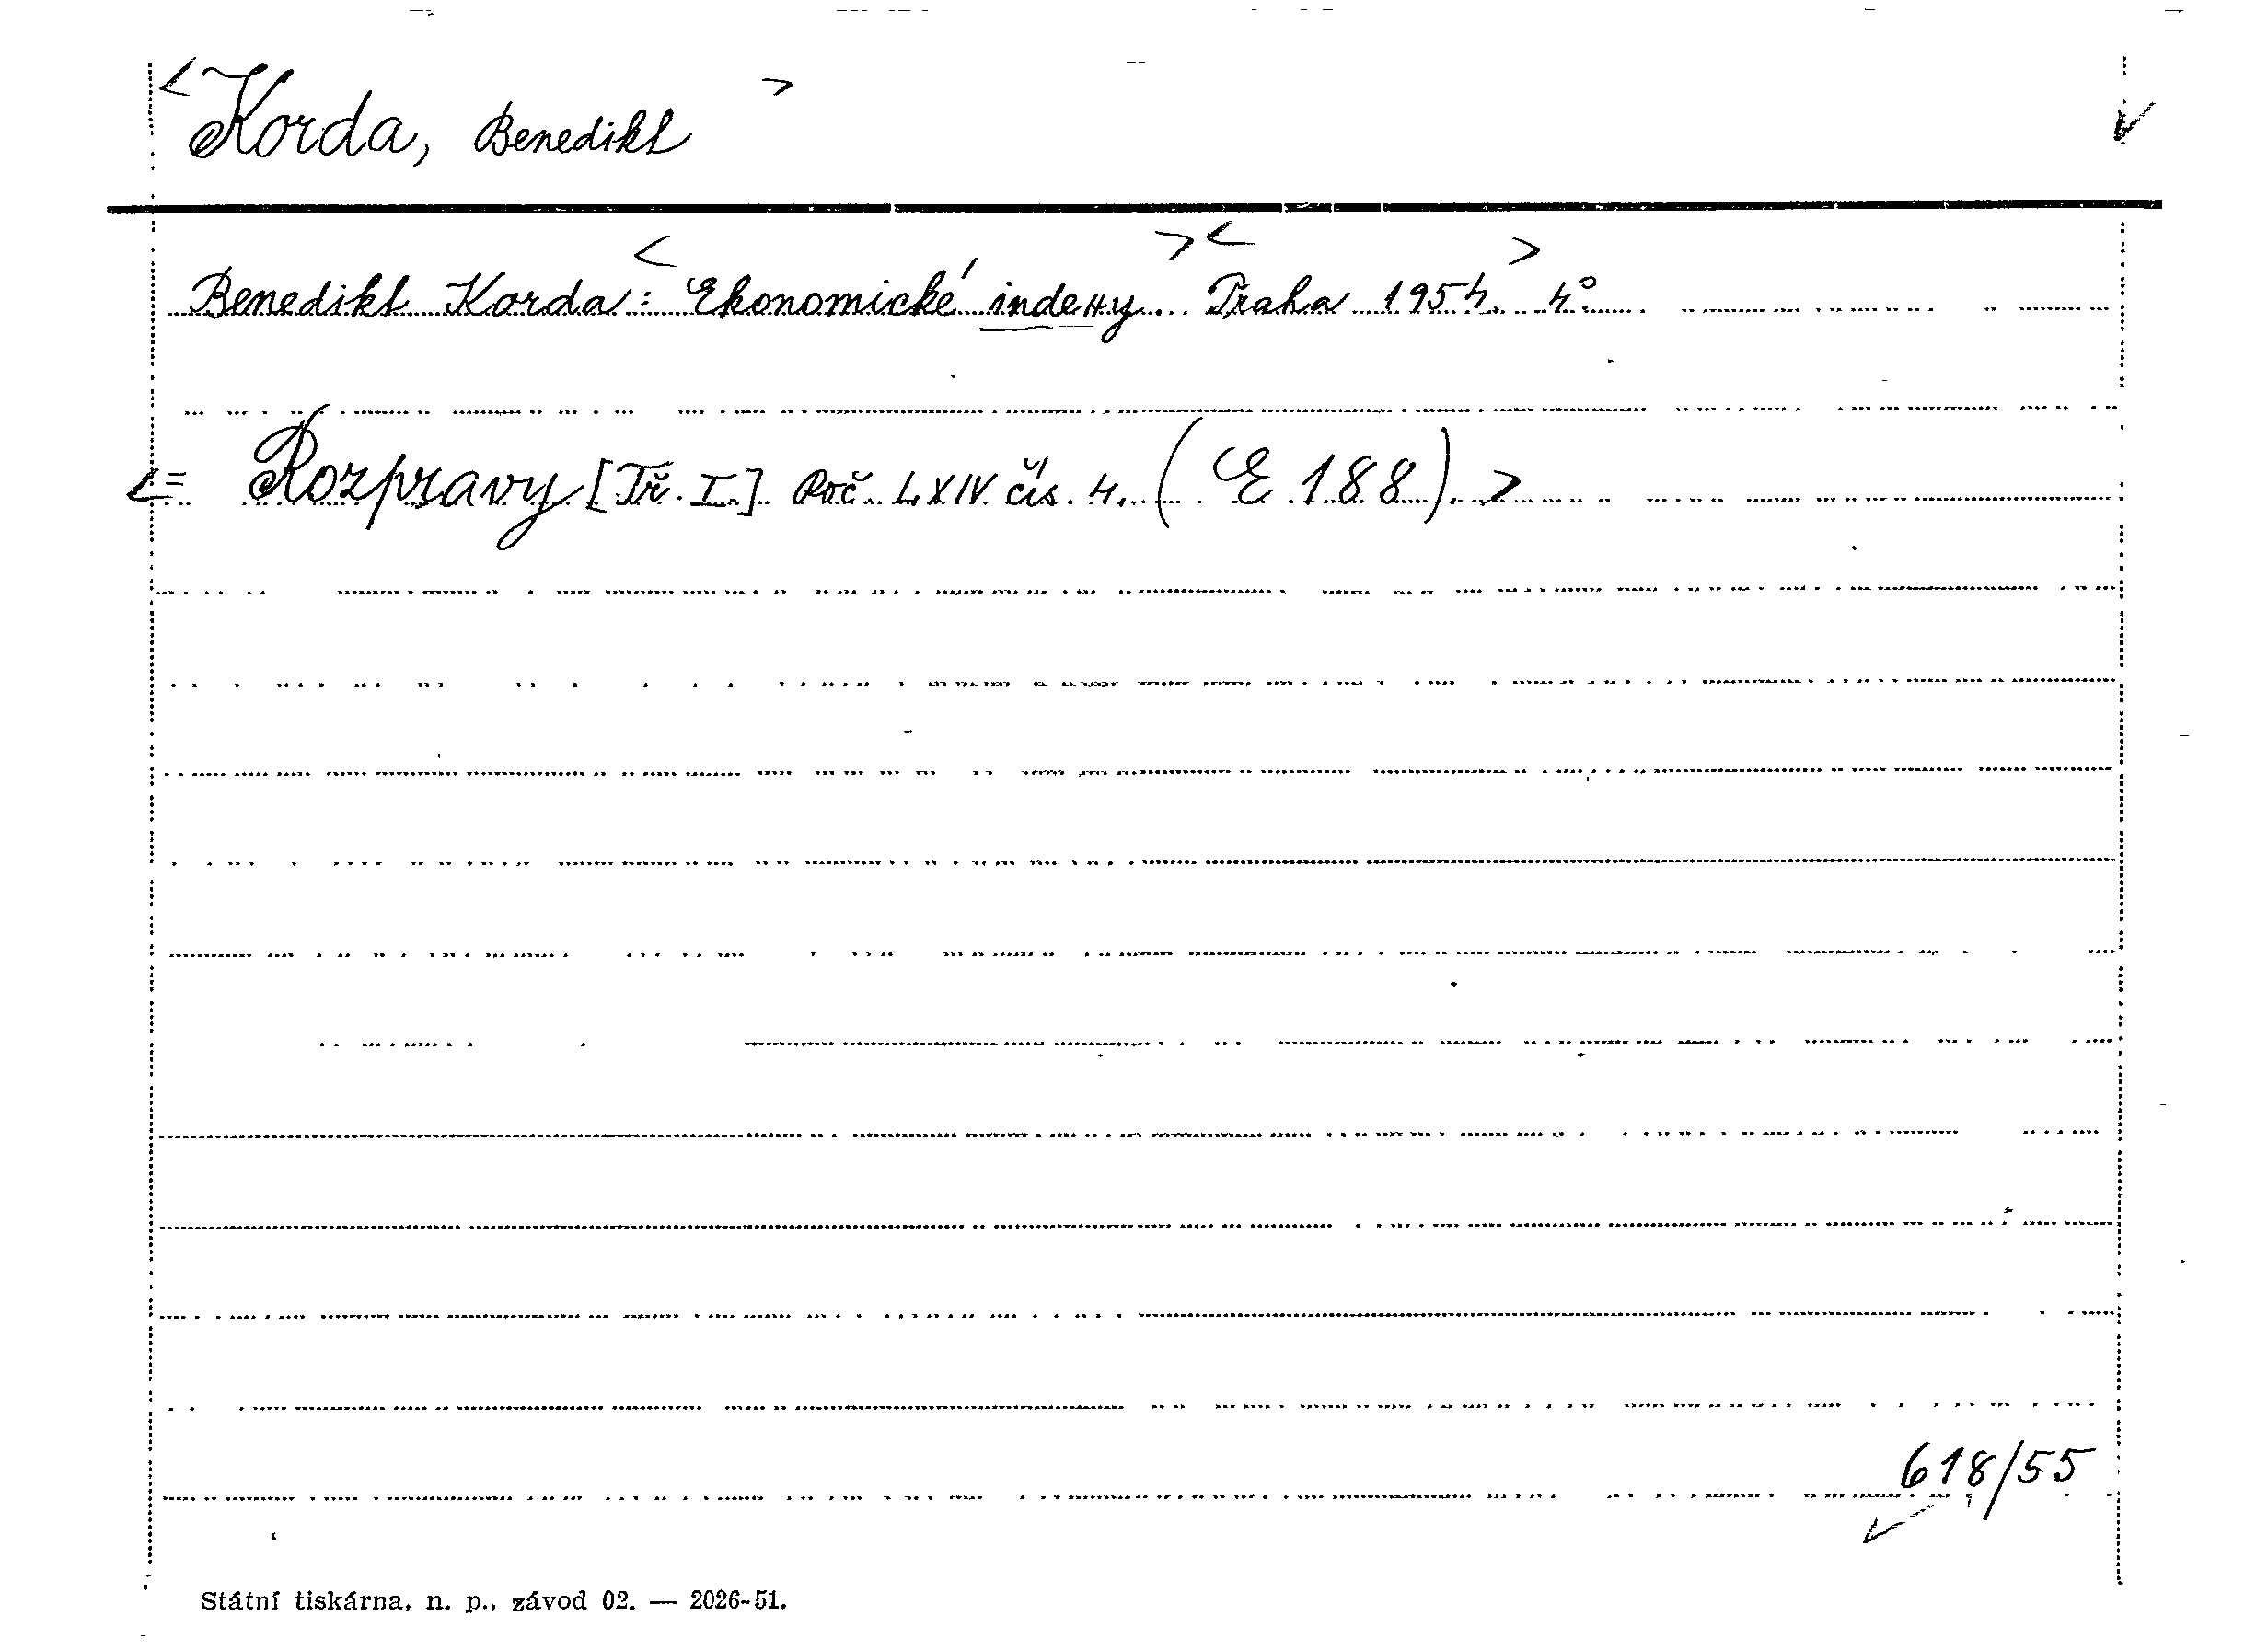 <Korda, Benedikt>
Benedikt Korda: <Ekonomické indexy.> <Praha 1954.> 4°.
<= Rozpravy [Tř. I.] Roč. LXIV čís. 4. (E 188).>
618/55
Státní tiskárna, n. p., závod 02. — 2026-51.